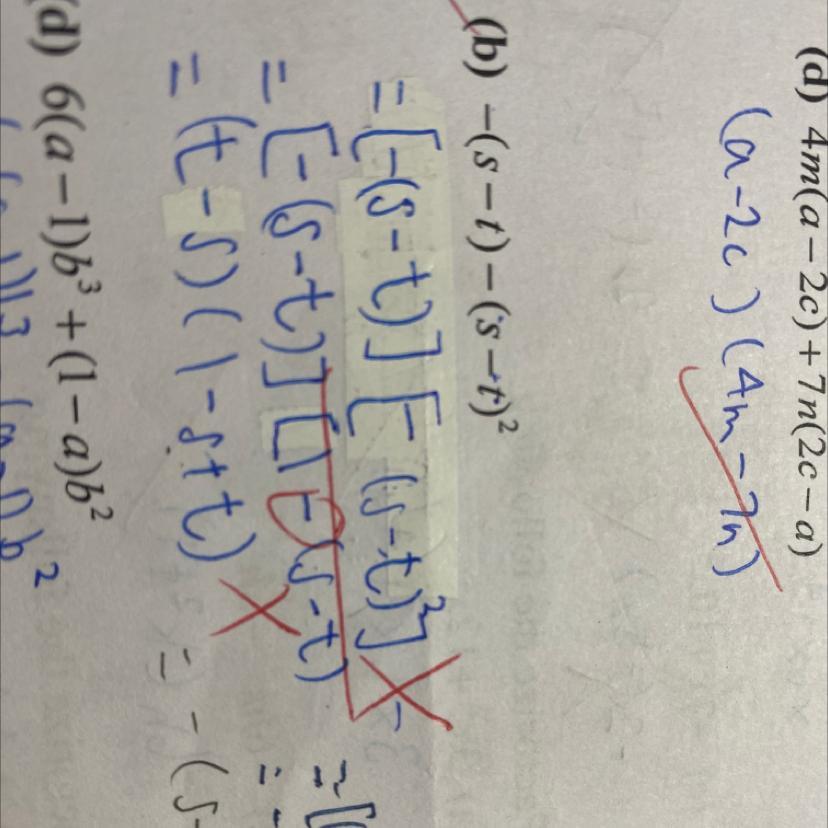 (d) 4m(a−2c)+7n(2c−a)
(a−2c)(4m−7n)
(b) −(s−t)−(s−t)²
=[−(s−t)][−(s−t)²]
=[−(s−t)][1−(s−t)
=(t−s)(1−s+t)
=−(s−
(d) 6(a−1)b³+(1−a)b²